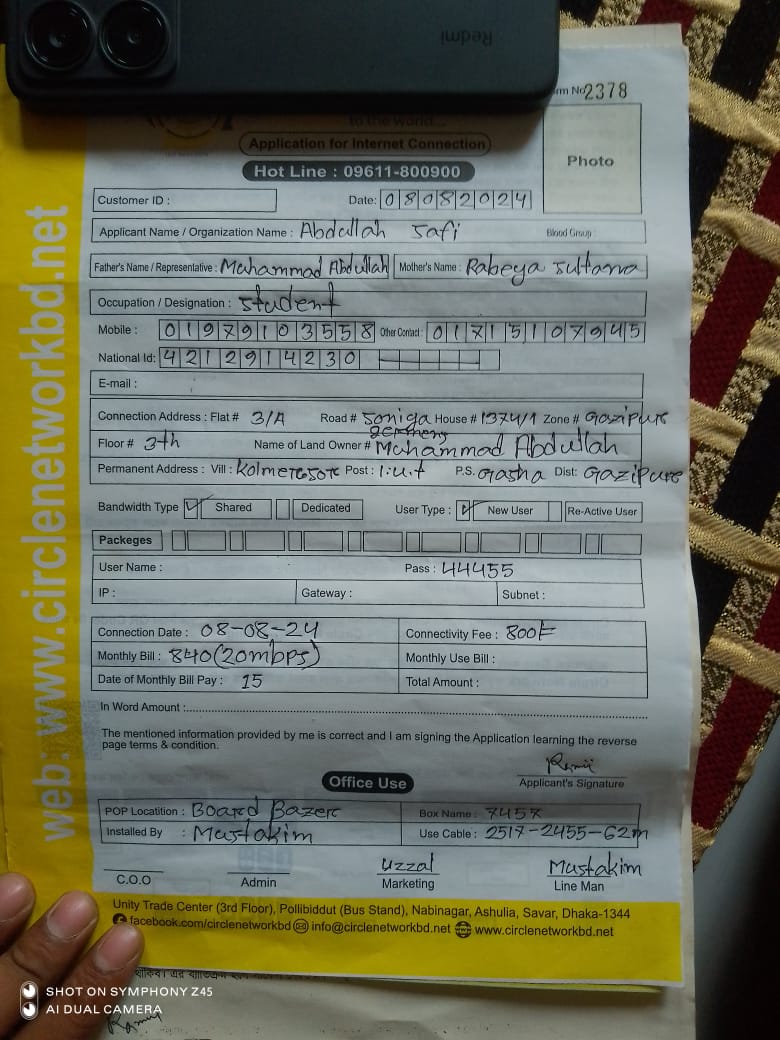 Redmi
rm No 2378
to the world...
Application for Internet Connection
Hot Line : 09611-800900
Photo
Customer ID :
Date: 08082024
Applicant Name / Organization Name : Abdullah Safi Blood Group :
Father's Name / Representative : Muhammad Abdullah Mother's Name : Rabeya Sultana
Occupation / Designation : Student
Mobile : 01979103558 Other Contact : 01715107945
National Id: 4212914230
E-mail :
Connection Address : Flat # 3/A Road # House # 1374/1 Zone # Gazipure
Floor # 3th Name of Land Owner # Muhammad Abdullah
Permanent Address : Vill : Post : I.U.T P.S. Gasha Dist: Gazipure
Bandwidth Type Shared Dedicated User Type : New User Re-Active User
Packeges
User Name : Pass : 44455
IP : Gateway : Subnet :
Connection Date : 08-08-24 Connectivity Fee : 800
Monthly Bill : 840(20mbps) Monthly Use Bill :
Date of Monthly Bill Pay : 15 Total Amount :
In Word Amount :
The mentioned information provided by me is correct and I am signing the Application learning the reverse
page terms & condition.
Applicant's Signature
Office Use
POP Locatition : Board Bazer Box Name : 7457
Installed By : Mustakim Use Cable : 2517-2455-62m
Uzzal Mustakim
C.O.O Admin Marketing Line Man
Unity Trade Center (3rd Floor), Pollibiddut (Bus Stand), Nabinagar, Ashulia, Savar, Dhaka-1344
facebook.com/circlenetworkbd info@circlenetworkbd.net www.circlenetworkbd.net
web: www.circlenetworkbd.net
SHOT ON SYMPHONY Z45
AI DUAL CAMERA